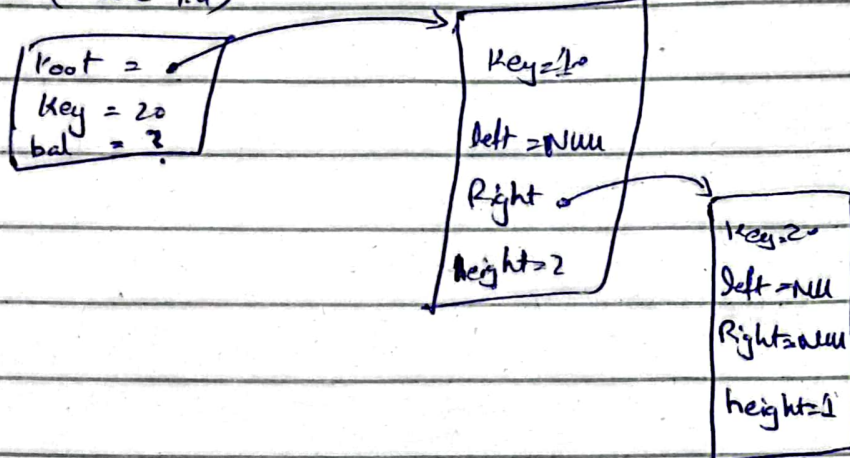 root =
Key = 20
bal = ?
Key=10
left = Null
Right
height=2
Key=20
left = Null
Right=Null
height=1